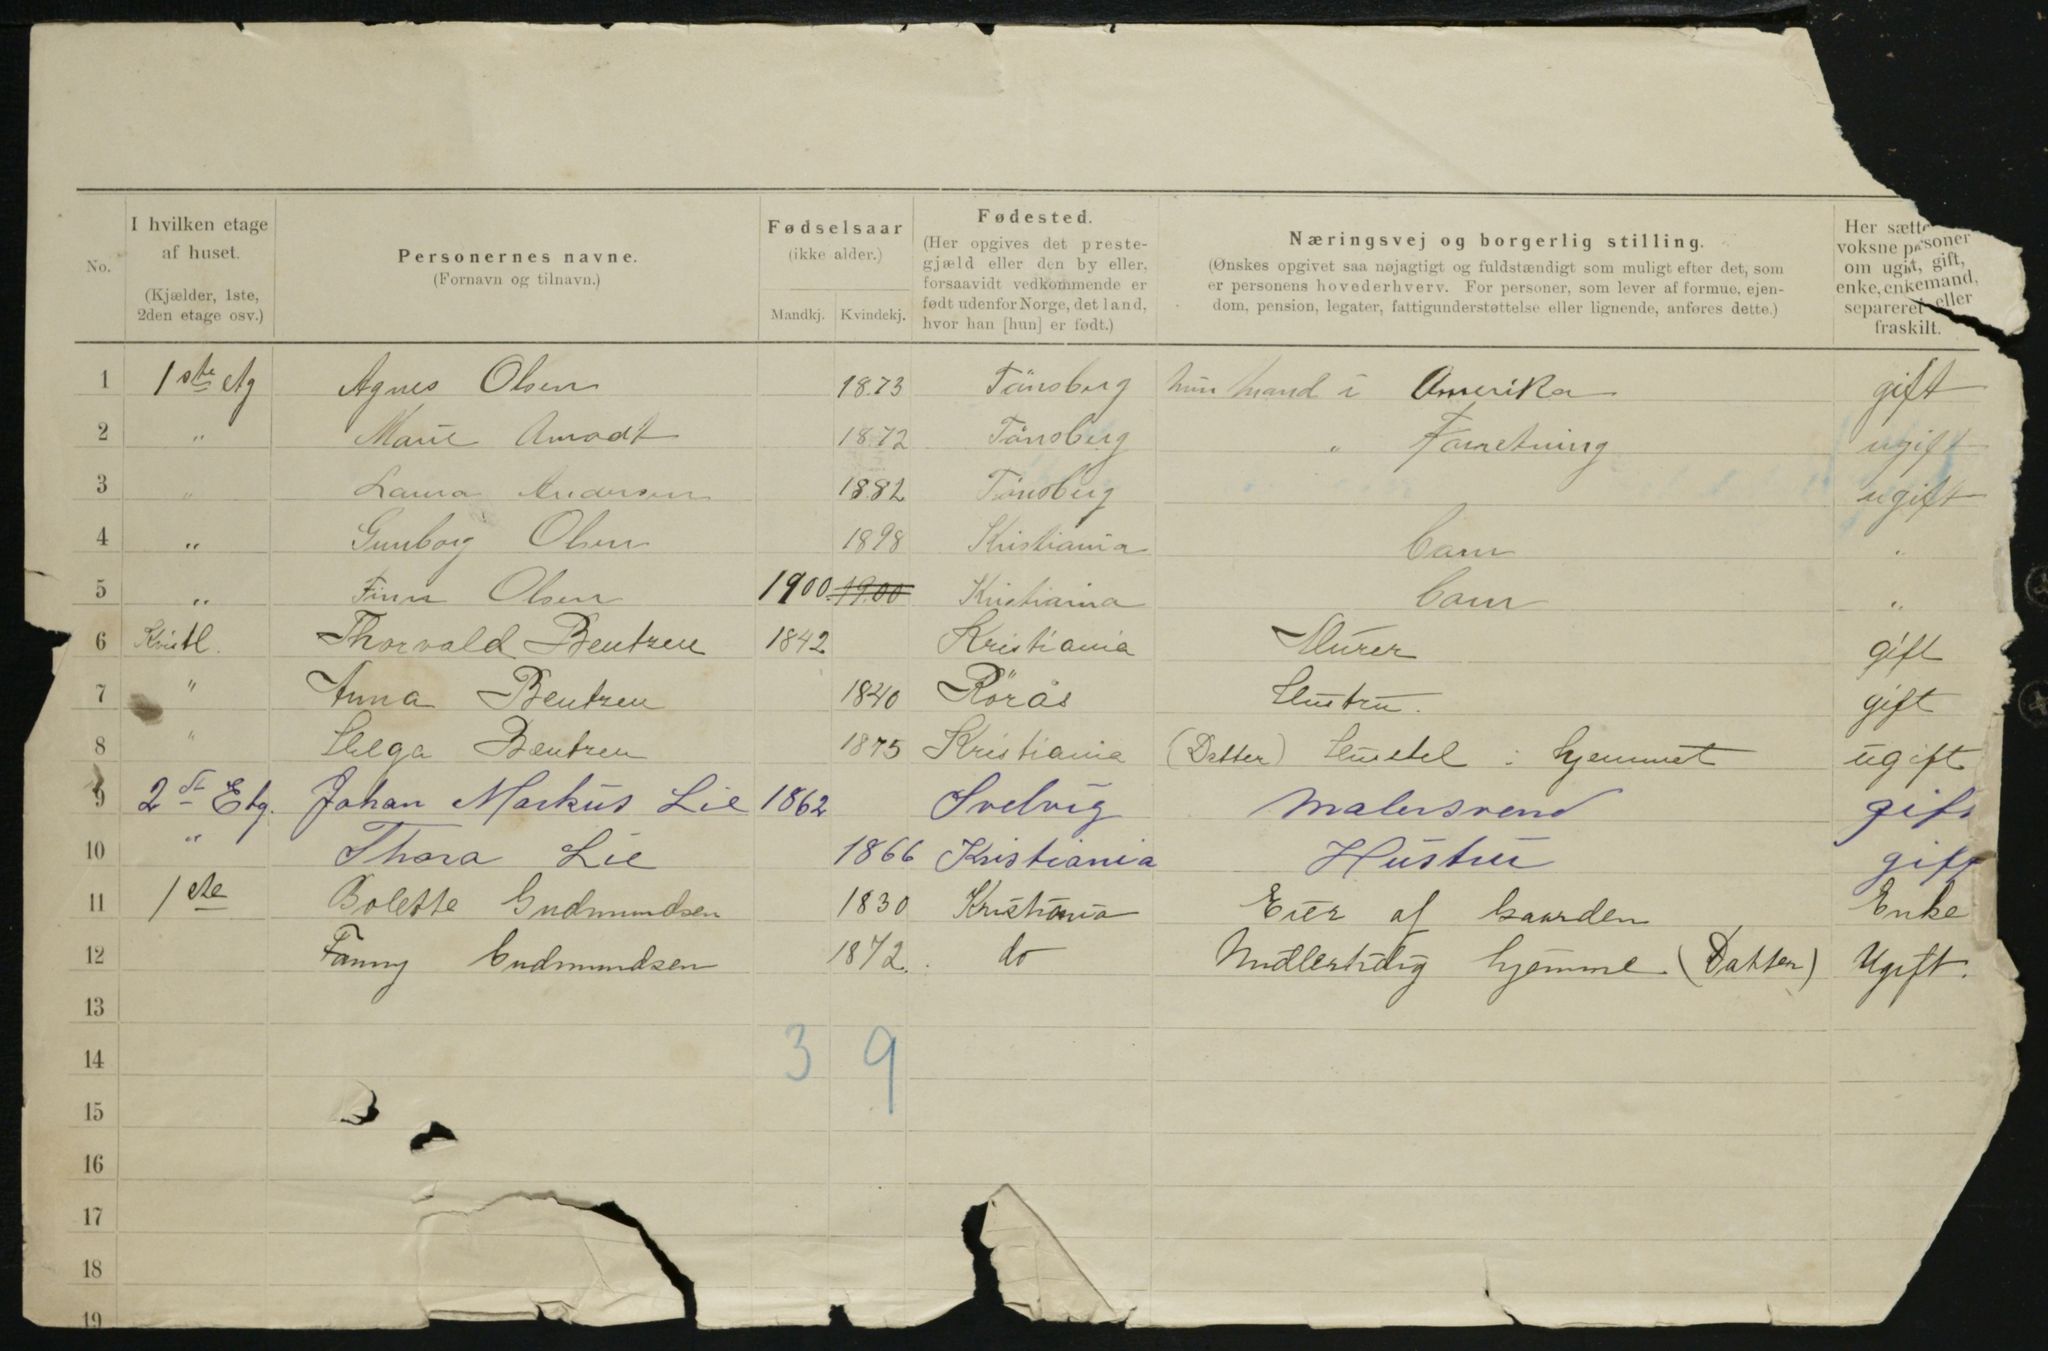 No.
I hvilken etage af huset.
(Kjælder, 1ste, 2den etage osv.)
Personernes navne.
(Fornavn og tilnavn.)
Fødselsaar
(ikke alder.)
Mandkj. Kvindekj.
Fødested.
(Her opgives det prestegjæld eller den by eller, forsaavidt vedkommende er født udenfor Norge, det land, hvor han [hun] er født.)
Næringsvej og borgerlig stilling.
(Ønskes opgivet saa nøjagtigt og fuldstændigt som muligt efter det, som er personens hovederhverv. For personer, som lever af formue, ejendom, pension, legater, fattigunderstøttelse eller lignende, anføres dette.)
Her sættes voksne personer om ugift, gift, enke, enkemand, separeret eller fraskilt.
1 1ste Etg Agnes Olsen 1873 Tönsberg mand i Amerika gift
2 " Marie Amodt 1872 Tönsberg " Forretning ugift
3 " Laura Andersen 1882 Tönsberg ugift
4 " Gunborg Olsen 1898 Kristiania barn "
5 " Finn Olsen 1900 1900 Kristiania barn "
6 Kvistl. Thorvald Bentzen 1842 Kristiania Murer gift
7 " Anna Bentzen 1840 Rörås Hustru. gift
8 " Helga Bentzen 1875 Kristiania (Datter) Hustel i hjemmet ugift
9 2den Etg. Johan Markus Lie 1862 Svelvig Malersvend gift
10 " Thora Lie 1866 Kristiania Hustru gift
11 1ste Bolette Gudmundsen 1830 Kristiania Eier af Gaarden Enke
12 Fanny Gudmundsen 1872. do Midlertidig hjemme (Datter) Ugift.
13
14 3 9
15
16
17
18
19